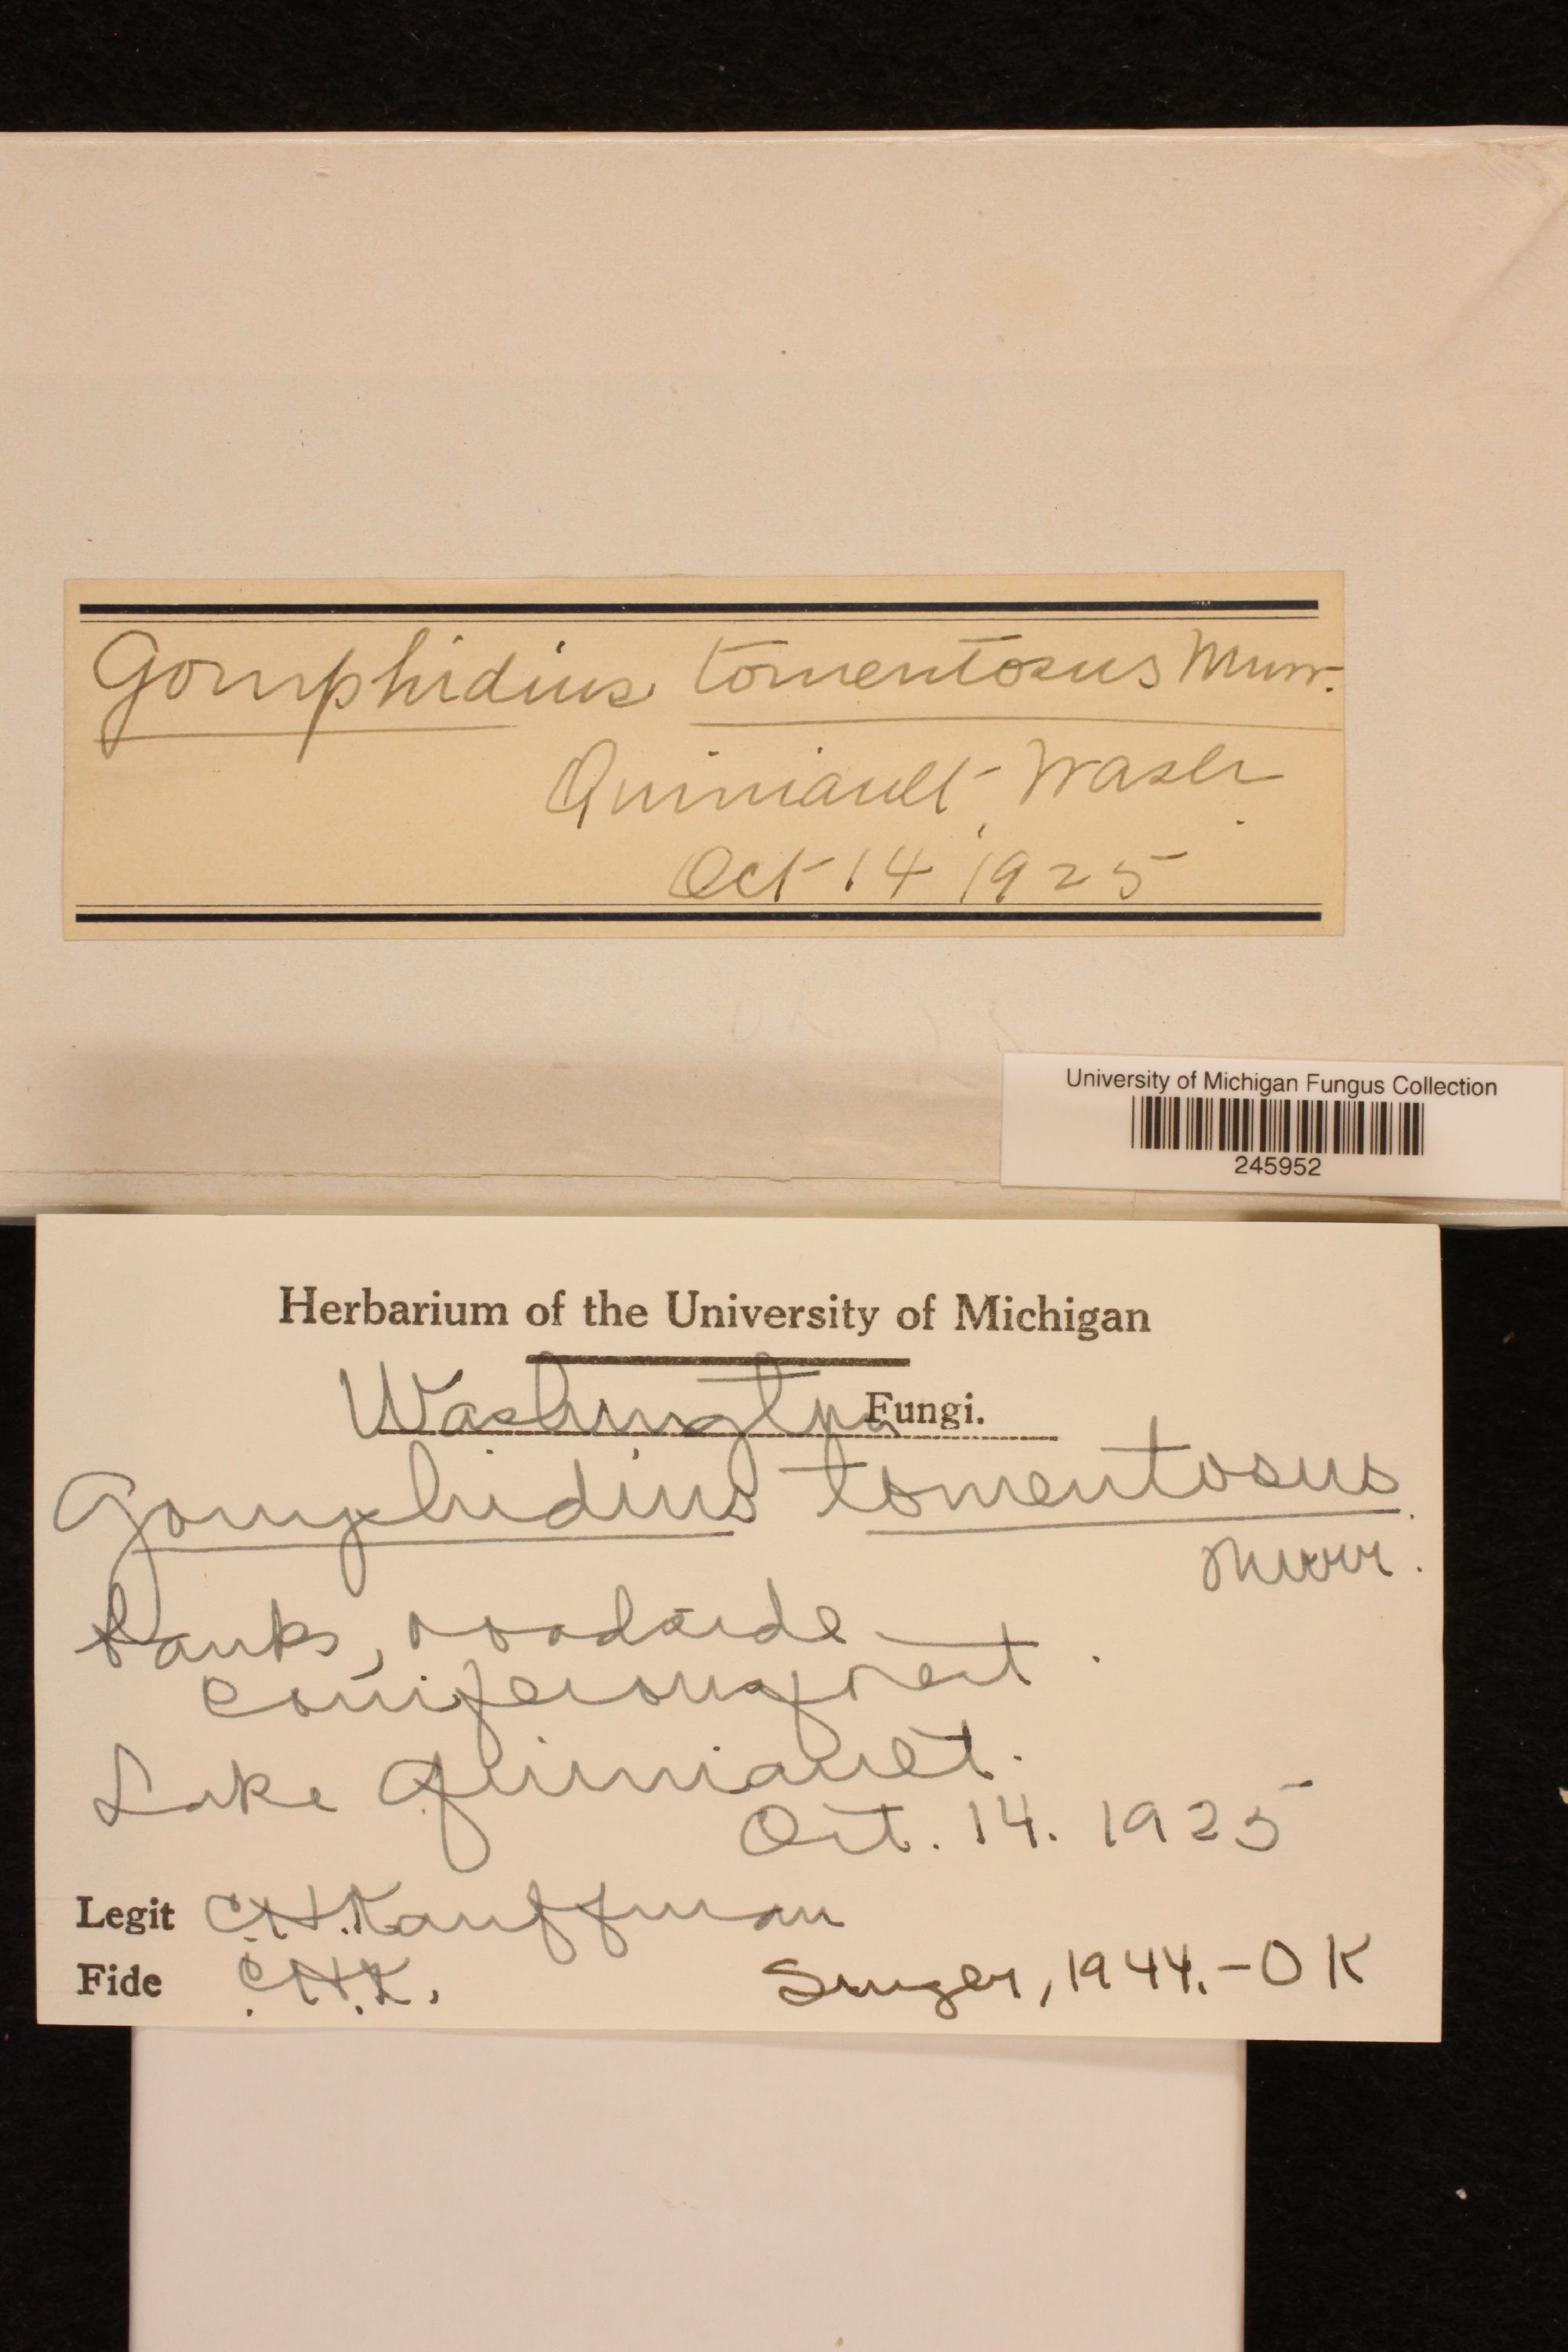 Gomphidius tomentosus Murr.
Quiniault, Wash.
Oct 14 1925
University of Michigan Fungus Collection
245952
Herbarium of the University of Michigan
Washington Fungi.
Gomphidius tomentosus
Murr.
banks, roadside
coniferous forest.
Lake Quiniault.
Oct. 14. 1925
Legit C.H. Kauffman
Fide C.H.K.
Singer, 1944. - OK